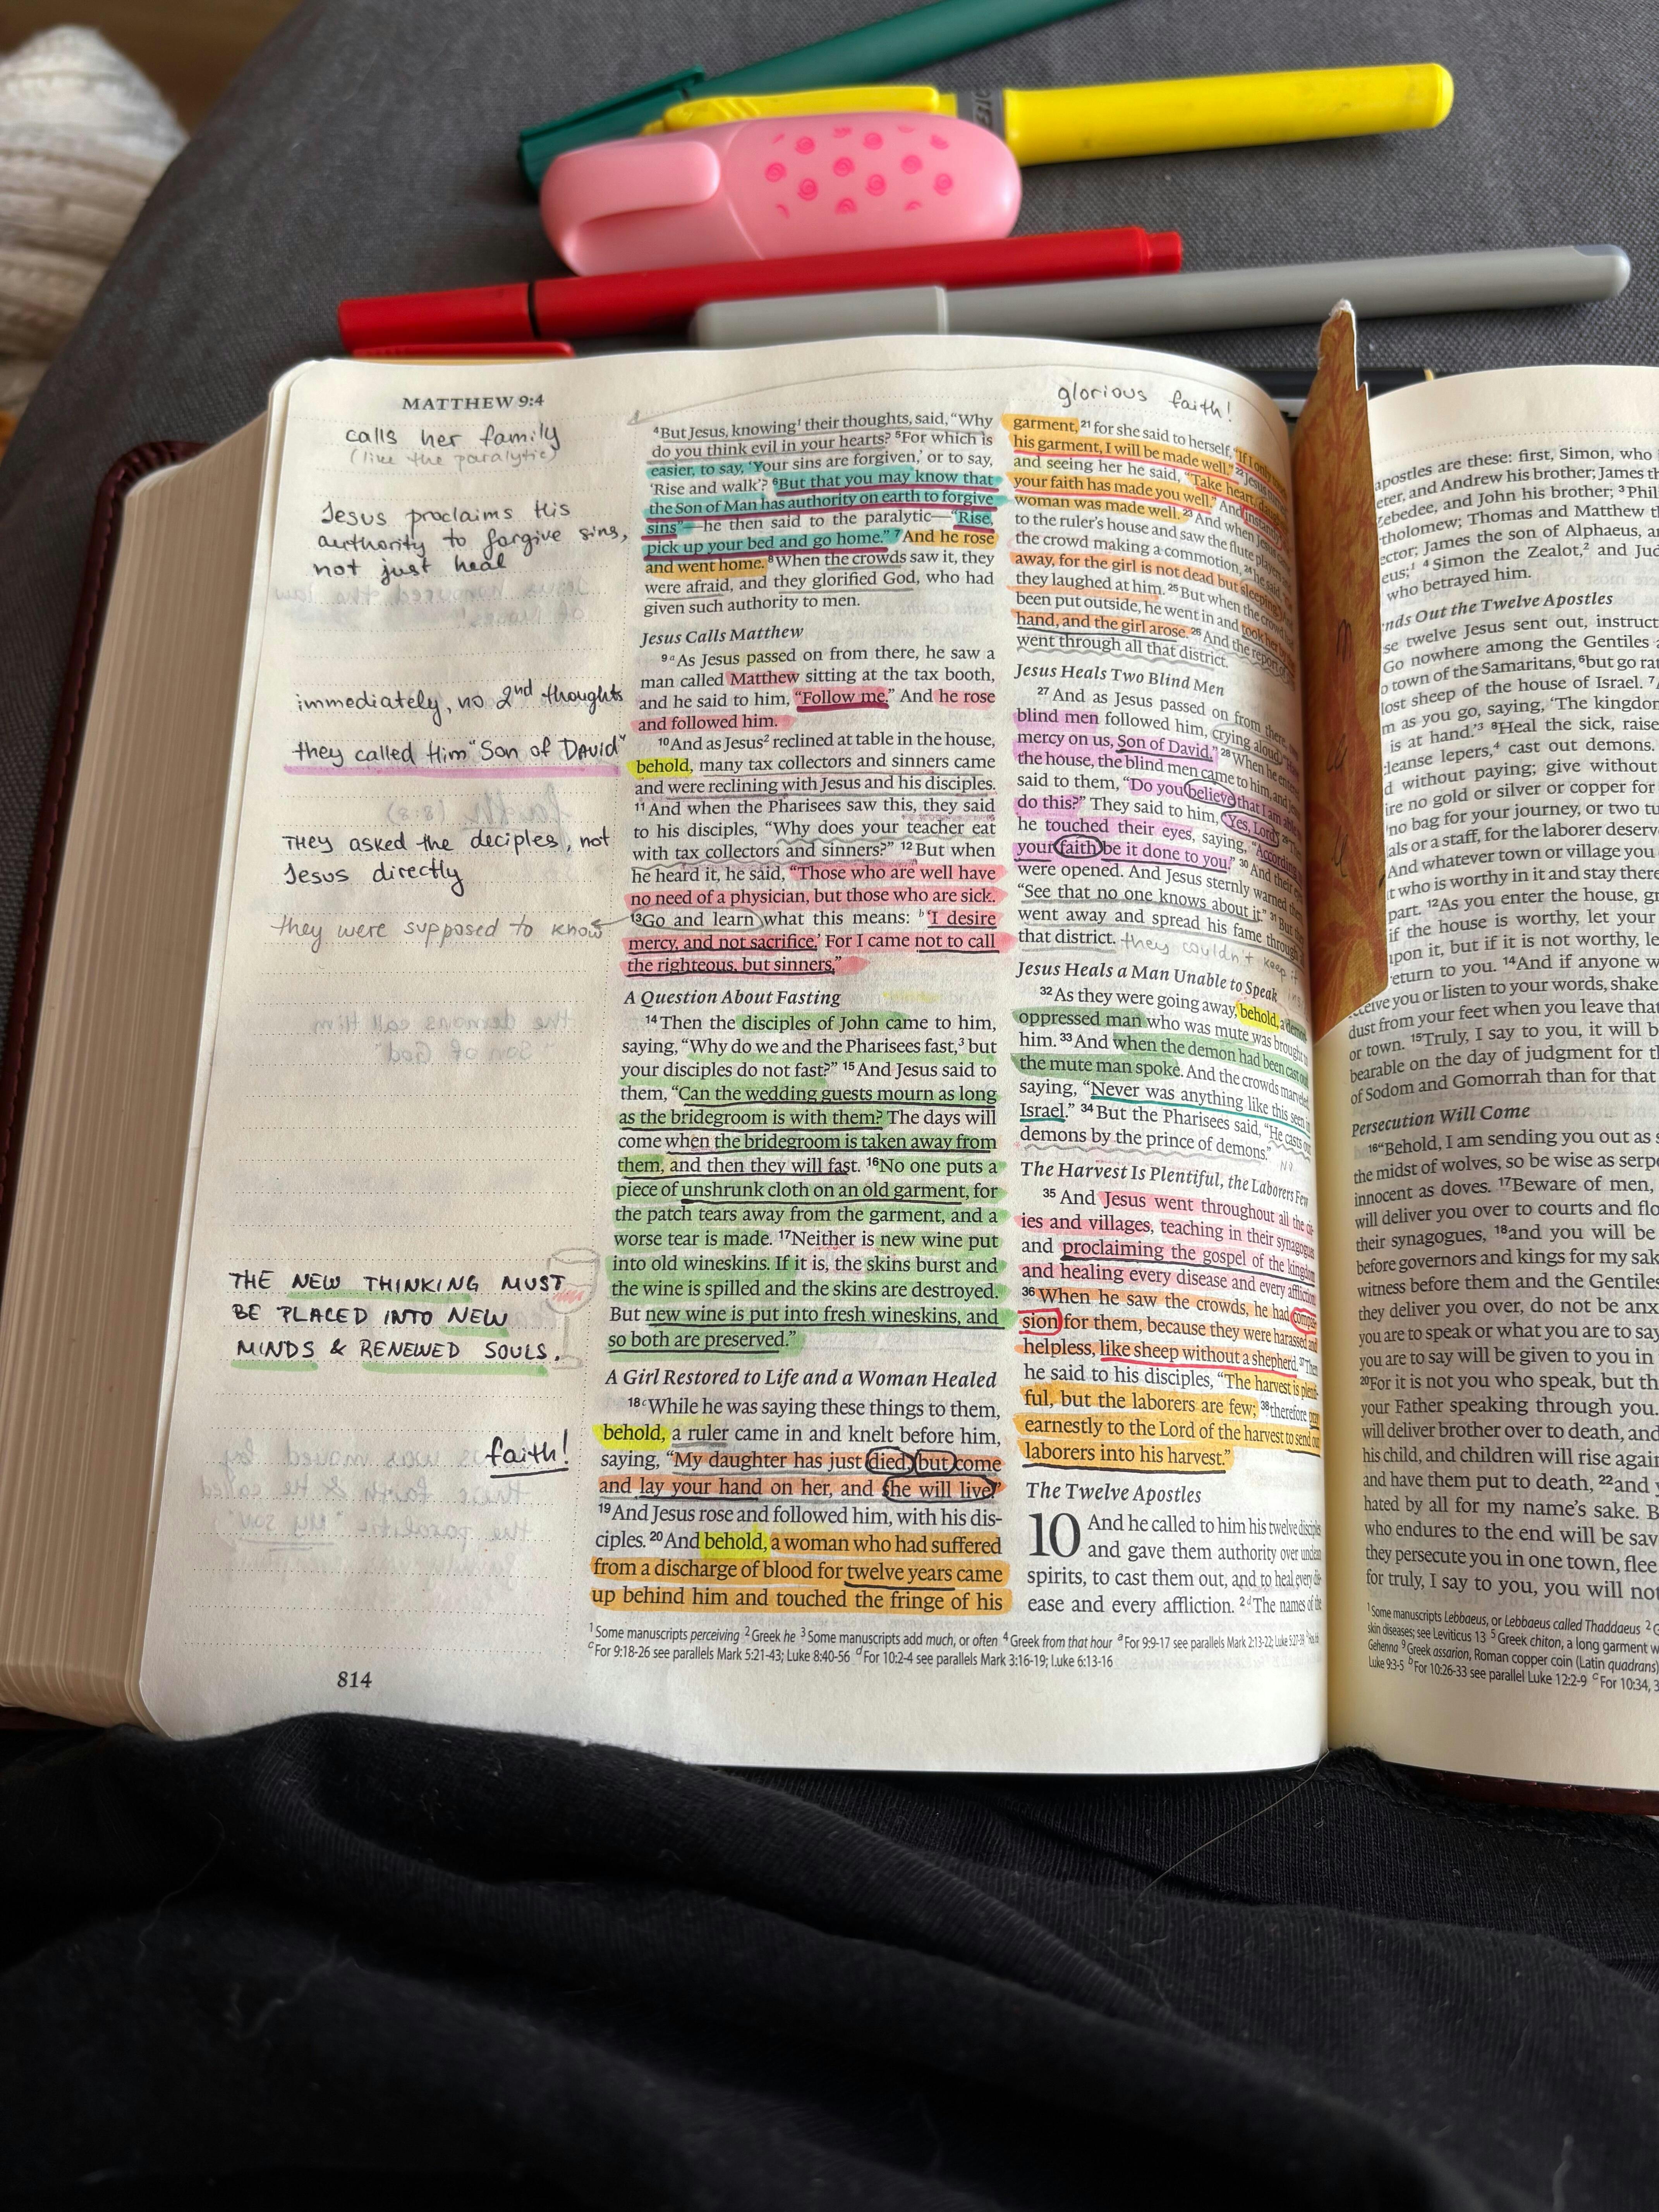 MATTHEW 9:4
calls her family
(like the paralytic)
Jesus proclaims His
authority to forgive sins,
not just heal
immediately, no 2nd thoughts
they called Him "Son of DAVID"
THEY asked the deciples, not
Jesus directly
they were supposed to know
THE NEW THINKING MUST
BE PLACED INTO NEW
MINDS & RENEWED SOULS.
faith!
814
4But Jesus, knowing1 their thoughts, said, "Why
do you think evil in your hearts? 5For which is
easier, to say, 'Your sins are forgiven,' or to say,
'Rise and walk'? 6But that you may know that
the Son of Man has authority on earth to forgive
sins"—he then said to the paralytic—"Rise,
pick up your bed and go home." 7And he rose
and went home. 8When the crowds saw it, they
were afraid, and they glorified God, who had
given such authority to men.
Jesus Calls Matthew
9aAs Jesus passed on from there, he saw a
man called Matthew sitting at the tax booth,
and he said to him, "Follow me." And he rose
and followed him.
10And as Jesus2 reclined at table in the house,
behold, many tax collectors and sinners came
and were reclining with Jesus and his disciples.
11And when the Pharisees saw this, they said
to his disciples, "Why does your teacher eat
with tax collectors and sinners?" 12But when
he heard it, he said, "Those who are well have
no need of a physician, but those who are sick.
13Go and learn what this means: b'I desire
mercy, and not sacrifice.' For I came not to call
the righteous, but sinners."
A Question About Fasting
14Then the disciples of John came to him,
saying, "Why do we and the Pharisees fast,3 but
your disciples do not fast?" 15And Jesus said to
them, "Can the wedding guests mourn as long
as the bridegroom is with them? The days will
come when the bridegroom is taken away from
them, and then they will fast. 16No one puts a
piece of unshrunk cloth on an old garment, for
the patch tears away from the garment, and a
worse tear is made. 17Neither is new wine put
into old wineskins. If it is, the skins burst and
the wine is spilled and the skins are destroyed.
But new wine is put into fresh wineskins, and
so both are preserved."
A Girl Restored to Life and a Woman Healed
18cWhile he was saying these things to them,
behold, a ruler came in and knelt before him,
saying, "My daughter has just died, but come
and lay your hand on her, and she will live."
19And Jesus rose and followed him, with his dis-
ciples. 20And behold, a woman who had suffered
from a discharge of blood for twelve years came
up behind him and touched the fringe of his
glorious faith!
garment, 21for she said to herself, "If I only
his garment, I will be made well." 22Jesus
and seeing her he said, "Take heart,
your faith has made you well." And instantly
woman was made well. 23And when Jesus
to the ruler's house and saw the flute players
the crowd making a commotion, 24he said,
away, for the girl is not dead but sleeping."
they laughed at him. 25But when the crowd
been put outside, he went in and took her by
hand, and the girl arose. 26And the report
went through all that district.
Jesus Heals Two Blind Men
27And as Jesus passed on from there,
blind men followed him, crying aloud,
mercy on us, Son of David." 28When he entered
the house, the blind men came to him, and
said to them, "Do you believe that I am able
do this?" They said to him, "Yes, Lord."
he touched their eyes, saying, "According
your faith be it done to you." 30And their
were opened. And Jesus sternly warned them
"See that no one knows about it." 31But they
went away and spread his fame through
that district. they couldn't keep it
Jesus Heals a Man Unable to Speak
32As they were going away, behold, a demon-
oppressed man who was mute was brought
him. 33And when the demon had been cast out
the mute man spoke. And the crowds marveled
saying, "Never was anything like this seen in
Israel." 34But the Pharisees said, "He casts out
demons by the prince of demons."
The Harvest Is Plentiful, the Laborers Few
35And Jesus went throughout all the cit-
ies and villages, teaching in their synagogues
and proclaiming the gospel of the kingdom
and healing every disease and every affliction.
36When he saw the crowds, he had compas-
sion for them, because they were harassed and
helpless, like sheep without a shepherd. 37Then
he said to his disciples, "The harvest is plenti-
ful, but the laborers are few; 38therefore pray
earnestly to the Lord of the harvest to send out
laborers into his harvest."
The Twelve Apostles
10 And he called to him his twelve disciples
and gave them authority over unclean
spirits, to cast them out, and to heal every dis-
ease and every affliction. 2dThe names of the
1Some manuscripts perceiving 2Greek he 3Some manuscripts add much, or often 4Greek from that hour aFor 9:9-17 see parallels Mark 2:13-22; Luke 5:27-39
cFor 9:18-26 see parallels Mark 5:21-43; Luke 8:40-56 dFor 10:2-4 see parallels Mark 3:16-19; Luke 6:13-16
apostles are these: first, Simon, who
eter, and Andrew his brother; James th
Zebedee, and John his brother; 3Phil
tholomew; Thomas and Matthew th
ector; James the son of Alphaeus, an
eus;1 4Simon the Zealot,2 and Jud
who betrayed him.
nds Out the Twelve Apostles
se twelve Jesus sent out, instruct
Go nowhere among the Gentiles a
o town of the Samaritans, 6but go rat
lost sheep of the house of Israel. 7
m as you go, saying, 'The kingdom
is at hand.'3 8Heal the sick, raise
leanse lepers,4 cast out demons.
d without paying; give without
ire no gold or silver or copper for
no bag for your journey, or two tu
als or a staff, for the laborer deserv
And whatever town or village you
t who is worthy in it and stay there
part. 12As you enter the house, gr
if the house is worthy, let your
upon it, but if it is not worthy, le
eturn to you. 14And if anyone w
ceive you or listen to your words, shake
dust from your feet when you leave that
or town. 15Truly, I say to you, it will b
bearable on the day of judgment for th
of Sodom and Gomorrah than for that
Persecution Will Come
16"Behold, I am sending you out as s
the midst of wolves, so be wise as serpe
innocent as doves. 17Beware of men,
will deliver you over to courts and flo
their synagogues, 18and you will be
before governors and kings for my sak
witness before them and the Gentiles
they deliver you over, do not be anx
you are to speak or what you are to say
you are to say will be given to you in
20For it is not you who speak, but th
your Father speaking through you.
will deliver brother over to death, and
his child, and children will rise again
and have them put to death, 22and y
hated by all for my name's sake. B
who endures to the end will be sav
they persecute you in one town, flee
for truly, I say to you, you will not
1Some manuscripts Lebbaeus, or Lebbaeus called Thaddaeus 2G
skin diseases; see Leviticus 13 5Greek chiton, a long garment w
Gehenna 9Greek assarion, Roman copper coin (Latin quadrans)
Luke 9:3-5 bFor 10:26-33 see parallel Luke 12:2-9 cFor 10:34, 3